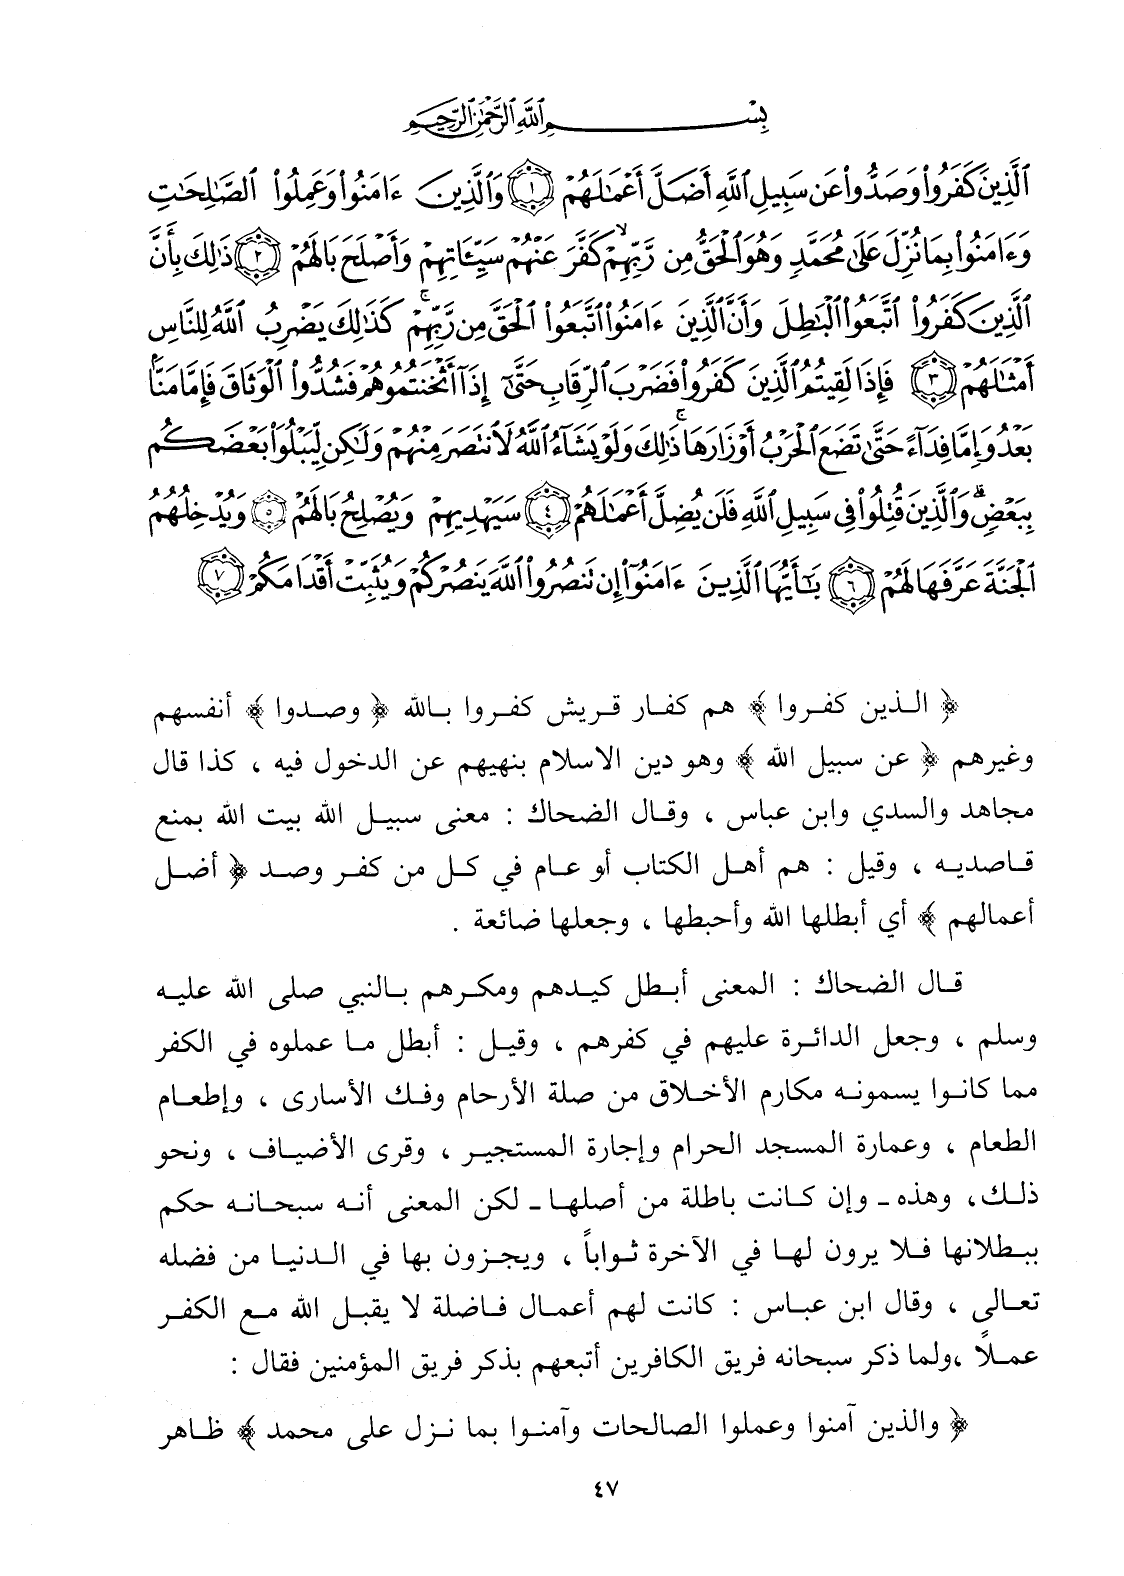 بِسْمِ ٱللَّهِ ٱلرَّحْمَٰنِ ٱلرَّحِيمِ
ٱلَّذِينَ كَفَرُوا۟ وَصَدُّوا۟ عَن سَبِيلِ ٱللَّهِ أَضَلَّ أَعْمَٰلَهُمْ ١ وَٱلَّذِينَ ءَامَنُوا۟ وَعَمِلُوا۟ ٱلصَّٰلِحَٰتِ
وَءَامَنُوا۟ بِمَا نُزِّلَ عَلَىٰ مُحَمَّدٍ وَهُوَ ٱلْحَقُّ مِن رَّبِّهِمْ ۙ كَفَّرَ عَنْهُمْ سَيِّـَٔاتِهِمْ وَأَصْلَحَ بَالَهُمْ ٢ ذَٰلِكَ بِأَنَّ
ٱلَّذِينَ كَفَرُوا۟ ٱتَّبَعُوا۟ ٱلْبَٰطِلَ وَأَنَّ ٱلَّذِينَ ءَامَنُوا۟ ٱتَّبَعُوا۟ ٱلْحَقَّ مِن رَّبِّهِمْ ۚ كَذَٰلِكَ يَضْرِبُ ٱللَّهُ لِلنَّاسِ
أَمْثَٰلَهُمْ ٣ فَإِذَا لَقِيتُمُ ٱلَّذِينَ كَفَرُوا۟ فَضَرْبَ ٱلرِّقَابِ حَتَّىٰٓ إِذَآ أَثْخَنتُمُوهُمْ فَشُدُّوا۟ ٱلْوَثَاقَ فَإِمَّا مَنًّۢا
بَعْدُ وَإِمَّا فِدَآءً حَتَّىٰ تَضَعَ ٱلْحَرْبُ أَوْزَارَهَا ۚ ذَٰلِكَ وَلَوْ يَشَآءُ ٱللَّهُ لَٱنتَصَرَ مِنْهُمْ وَلَٰكِن لِّيَبْلُوَا۟ بَعْضَكُم
بِبَعْضٍ ۗ وَٱلَّذِينَ قُتِلُوا۟ فِى سَبِيلِ ٱللَّهِ فَلَن يُضِلَّ أَعْمَٰلَهُمْ ٤ سَيَهْدِيهِمْ وَيُصْلِحُ بَالَهُمْ ٥ وَيُدْخِلُهُمُ
ٱلْجَنَّةَ عَرَّفَهَا لَهُمْ ٦ يَٰٓأَيُّهَا ٱلَّذِينَ ءَامَنُوٓا۟ إِن تَنصُرُوا۟ ٱللَّهَ يَنصُرْكُمْ وَيُثَبِّتْ أَقْدَامَكُمْ ٧
﴿ الذين كفروا ﴾ هم كفار قريش كفروا بالله ﴿ وصدوا ﴾ أنفسهم
وغيرهم ﴿ عن سبيل الله ﴾ وهو دين الاسلام بنهيهم عن الدخول فيه ، كذا قال
مجاهد والسدي وابن عباس ، وقال الضحاك : معنى سبيل الله بيت الله بمنع
قاصديه ، وقيل : هم أهل الكتاب أو عام في كل من كفر وصد ﴿ أضل
أعمالهم ﴾ أي أبطلها الله وأحبطها ، وجعلها ضائعة .
قال الضحاك : المعنى أبطل كيدهم ومكرهم بالنبي صلى الله عليه
وسلم ، وجعل الدائرة عليهم في كفرهم ، وقيل : أبطل ما عملوه في الكفر
مما كانوا يسمونه مكارم الأخلاق من صلة الأرحام وفك الأسارى ، وإطعام
الطعام ، وعمارة المسجد الحرام وإجارة المستجير ، وقرى الأضياف ، ونحو
ذلك، وهذه ـ وإن كانت باطلة من أصلها ـ لكن المعنى أنه سبحانه حكم
ببطلانها فلا يرون لها في الآخرة ثواباً ، ويجزون بها في الدنيا من فضله
تعالى ، وقال ابن عباس : كانت لهم أعمال فاضلة لا يقبل الله مع الكفر
عملاً ،ولما ذكر سبحانه فريق الكافرين أتبعهم بذكر فريق المؤمنين فقال :
﴿ والذين آمنوا وعملوا الصالحات وآمنوا بما نزل على محمد ﴾ ظاهر
٤٧